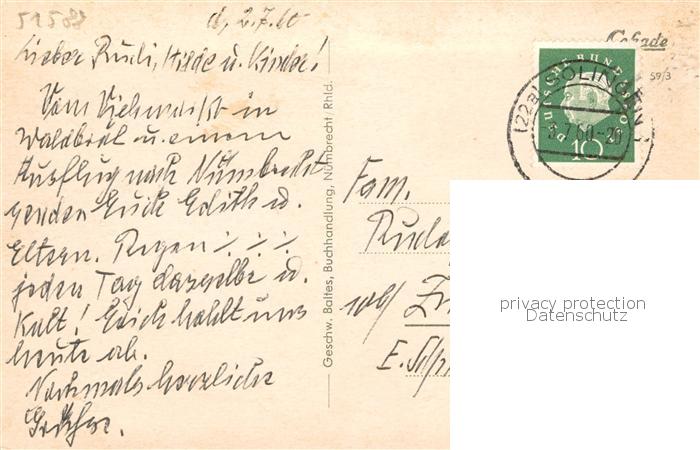 51587
d, 2.7.60
Lieber Rudi, Hilde u. Kinder!
Vom Viehmarkt in
Waldbröl u. einem
Ausflug nach Nümbrecht
senden Euch Edith u.
Eltern. Regen ·/. ·/. ·/.
jeden Tag dasselbe u.
Kalt! Erich hohlt uns
heute ab.
Nochmals herzliche
Grüße.
Geschw. Baltes, Buchhandlung, Nümbrecht/Rhld.
Cekade
59/3
DEUTSCHE BUNDESPOST
10
(22a) SOLINGEN
7.60-20
Fam.
privacy protection
Datenschutz